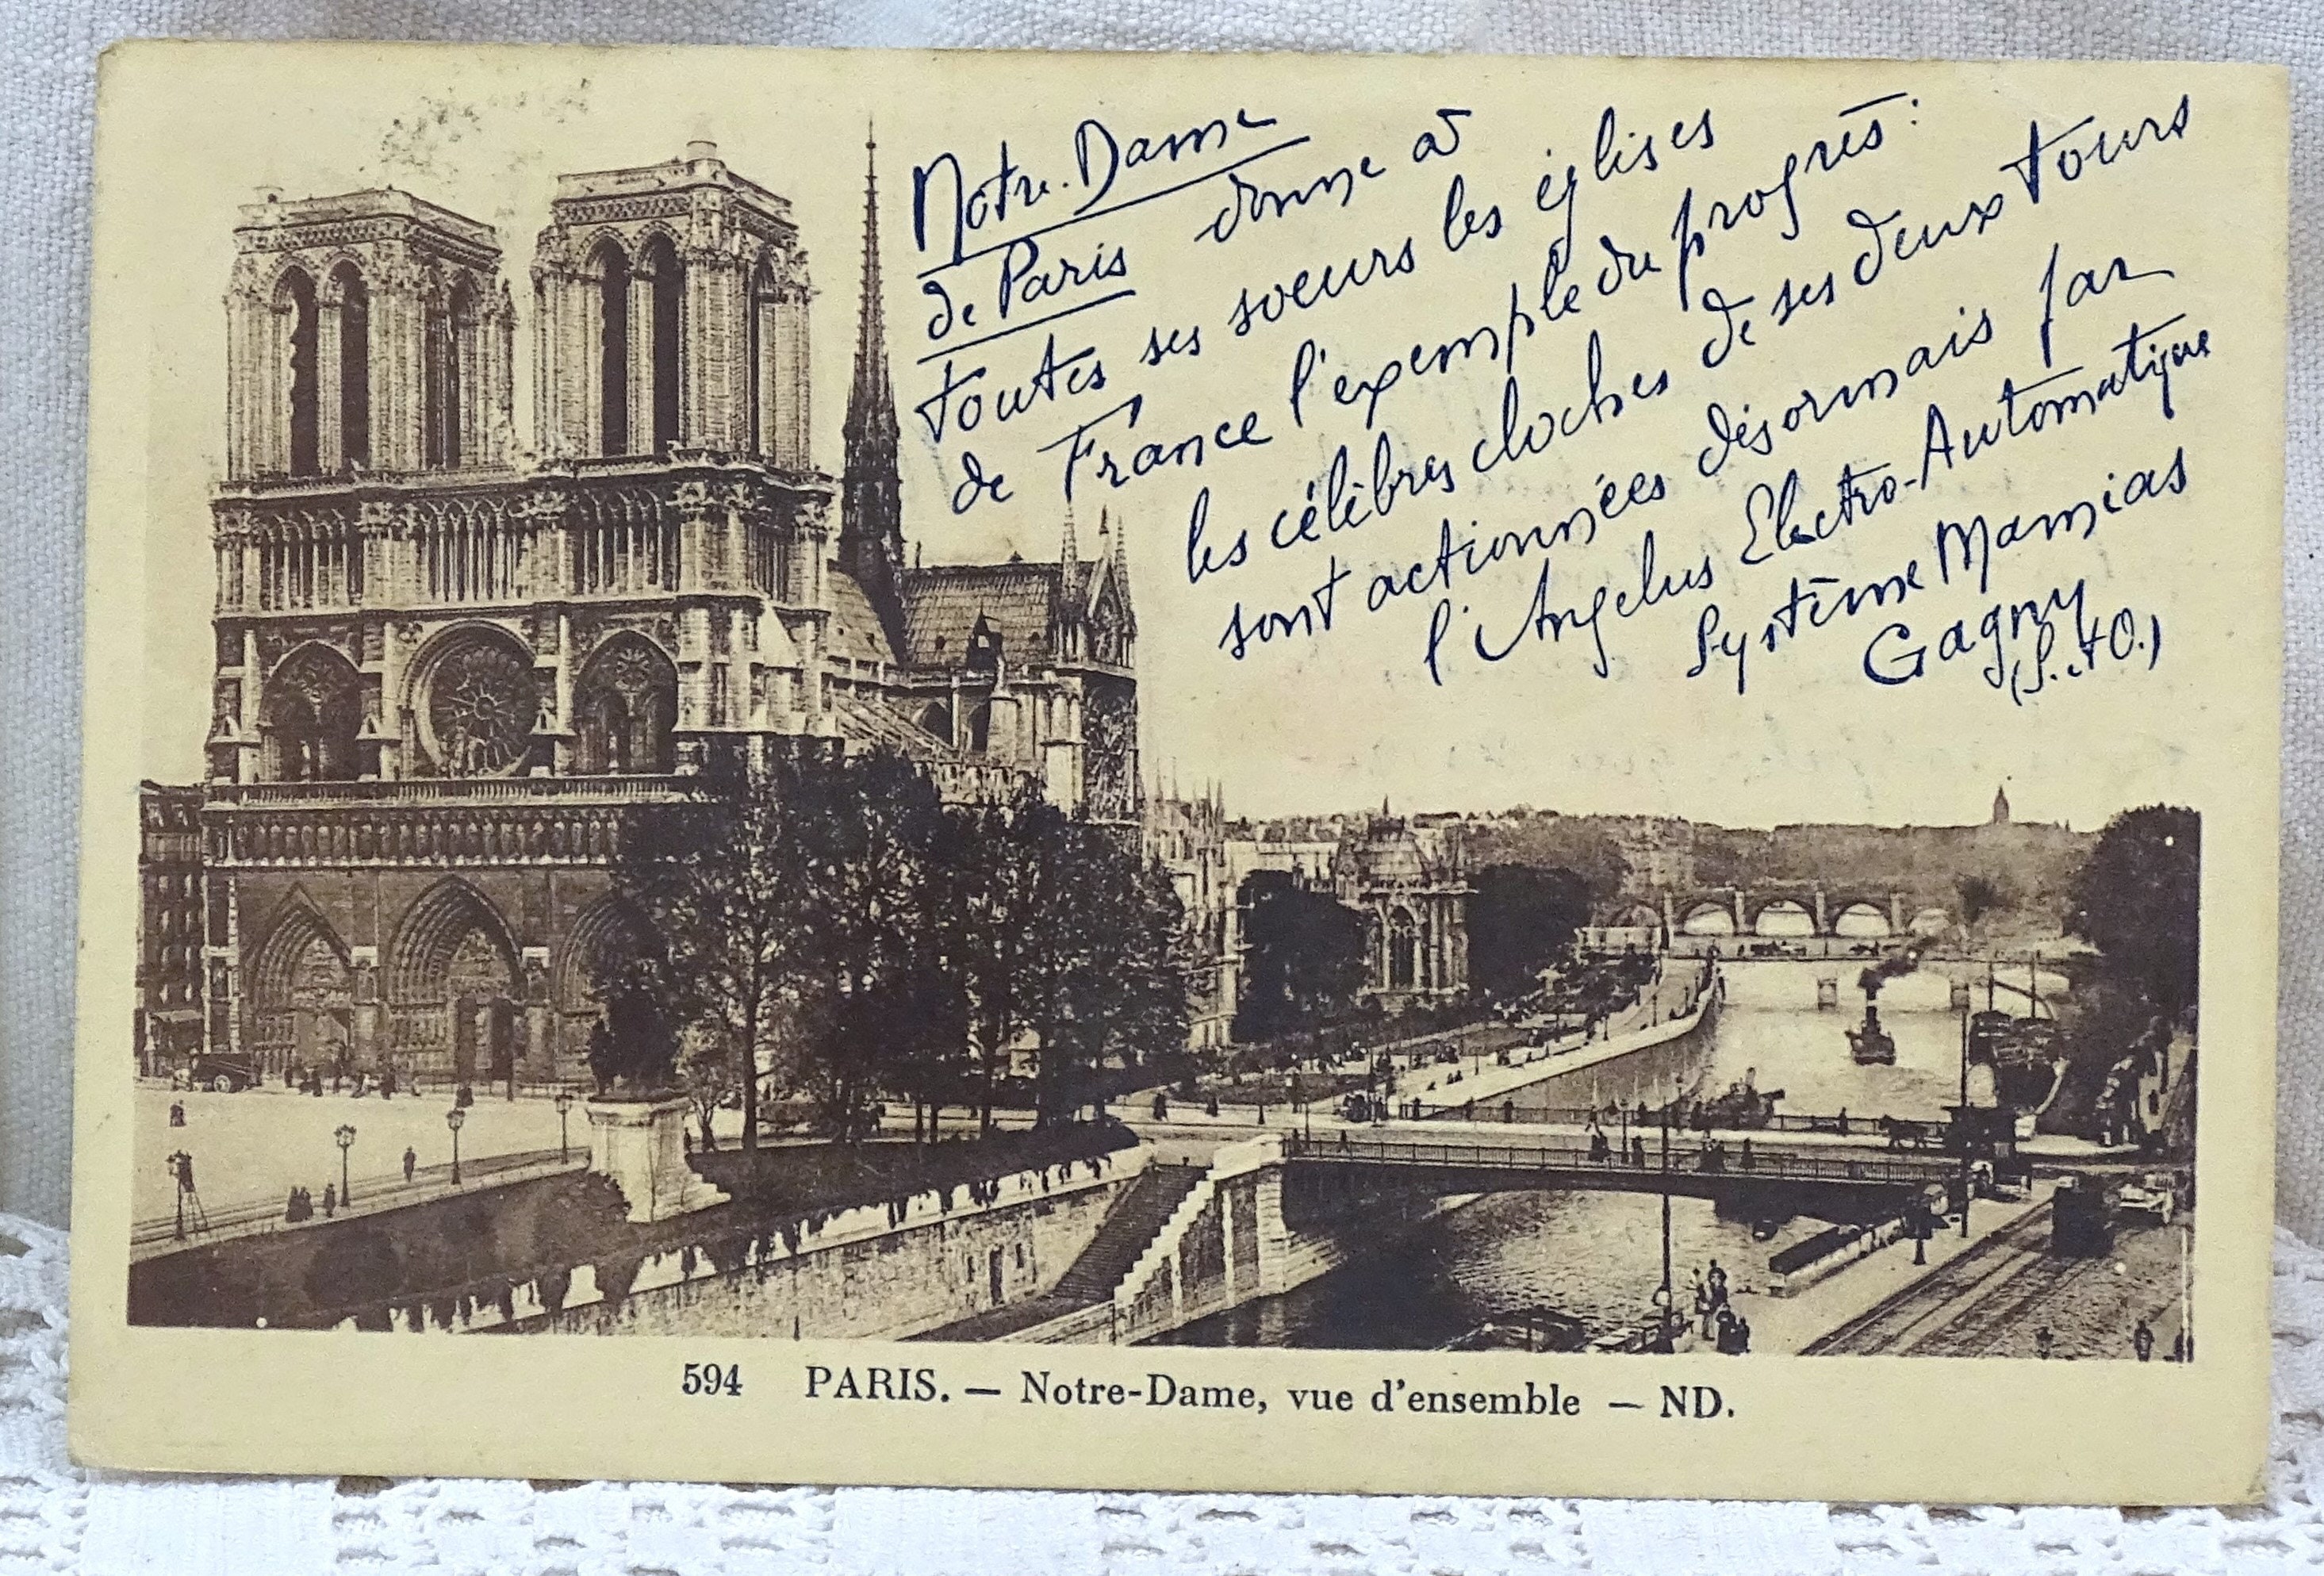 Notre-Dame
de Paris donne à
toutes ses soeurs les églises
de France l'exemple du progrès :
les célèbres cloches de ses deux tours
sont actionnées désormais par
l'Angelus Electro-Automatique
Système Mamias
Gagny
(S. et O.)
594 PARIS. — Notre-Dame, vue d'ensemble — ND.